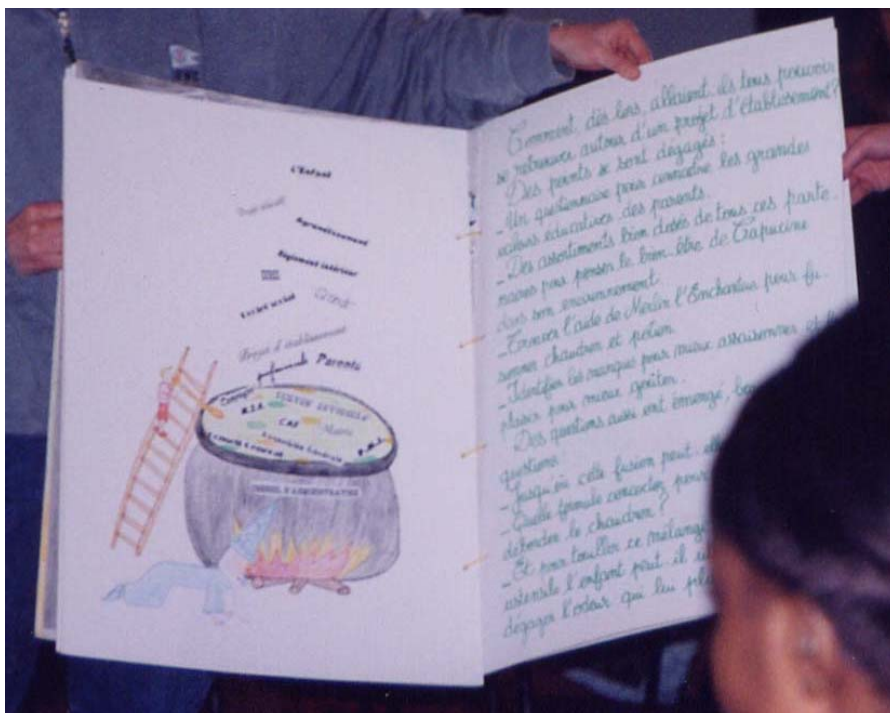 L'Enfant
Apprentissement
Règlement intérieur
Projet social
Projet d'établissement
professionnels Parents
CAF Mairie
Assemblée Générale
P.M.I.
CONSEIL D'ADMINISTRATION
Comment, dès lors, allaient ils tous pouvoir
se retrouver autour d'un projet d'établissement?
Des points se sont dégagés :
_Un questionnaire pour connaître les grandes
valeurs éducatives des parents.
_Des assortiments bien dosés de tous ces parte_
naires pour penser le bien_être de Capucine
dans son environnement
_Trouver l'aide de Merlin l'Enchanteur pour fu_
sionner chaudron et potion.
_Identifier les manques pour mieux assaisonner et
plaisir pour mieux goûter.
Des questions aussi ont émergé,
questions.
_Jusqu'où cette fusion peut
_Quelle formule concocter pour
déborder le chaudron?
_Et pour touiller ce mélange
ustensile l'enfant peut_il
dégager l'odeur qui lui